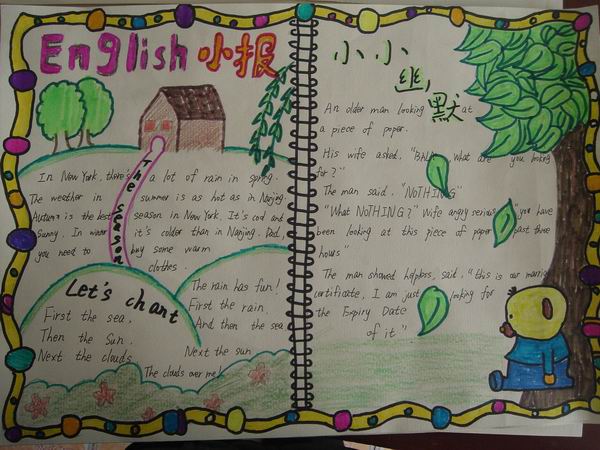 English 小报
The season
In New York, there's a lot of rain in spring.
The weather in summer is as hot as in Nanjing.
Autumn is the best season in New York. It's cool and
Sunny. In winter it's colder than in Nanjing. Dad,
you need to buy some warm
clothes.
Let's chant
First the sea,
Then the Sun,
Next the clouds
The rain has fun!
First the rain.
And then the sea
Next the sun
The clouds over me!
小小
幽默
An older man looking at
a piece of paper.
His wife asked, " what are you looking
for?"
The man said, "NOTHING"
"What NOTHING?" Wife angry serious "you have
been looking at this piece of paper past three
hours"
The man showed helpless, said, "this is our marriage
certificate, I am just looking for
the Expiry Date
of it"